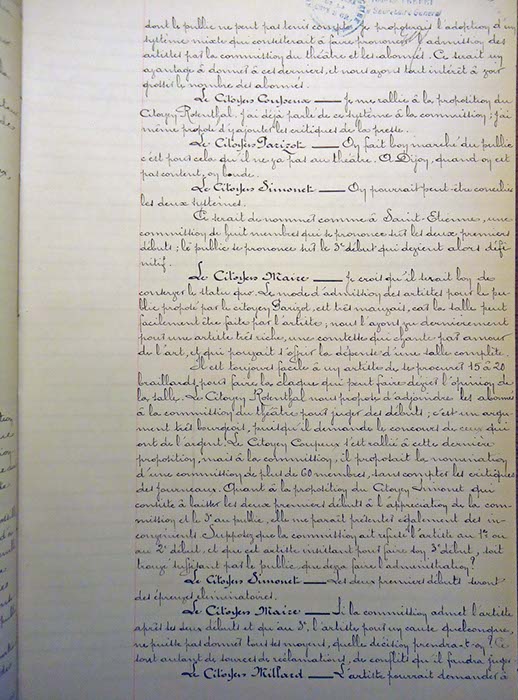 Secrétaire Général
dont le public ne peut pas tenir compte, je proposerai l'adoption d'un
système mixte qui consisterait à faire prononcer l'admission des
artistes par la commission du théâtre et les abonnés. Ce serait un
avantage à donner à ces derniers, et nous avons tout intérêt à voir
grossir le nombre des abonnés.
Le Citoyen Coupeux — Je me rallie à la proposition du
Citoyen Rosenthal. J'ai déjà parlé de ce système à la commission; j'ai
même proposé d'y ajouter les critiques de la presse.
Le Citoyen Parizot — On fait bon marché du public
c'est pour cela qu'il ne va pas au théâtre. A Dijon, quand on est
pas content, on boude.
Le Citoyen Simonet — On pourrait peut-être concilier
les deux systèmes.
Ce serait de nommer comme à Saint-Etienne, une
commission de huit membres qui se prononce sur les deux premiers
débuts; le public se prononce sur le 3e début qui devient alors défi-
nitif.
Le Citoyen Maire — Je crois qu'il serait bon de
conserver le statu quo. Le mode d'admission des artistes pour le pu-
blic proposé par le citoyen Parizot, est très mauvais, car la salle peut
facilement être faite par l'artiste; nous l'avons vu dernièrement
pour une artiste très riche, une comtesse qui chante par amour
de l'art, et qui pouvait s'offrir la dépense d'une salle complète.
Il est toujours facile à un artiste de se procurer 15 à 20
braillards pour faire la claque qui peut faire dévier l'opinion de
la salle. Le Citoyen Rosenthal nous propose d'adjoindre les abonnés
à la commission du théâtre pour juger des débuts; c'est un argu-
ment très bourgeois, puisqu'il demande le concours de ceux qui
ont de l'argent. Le Citoyen Coupeux s'est rallié à cette dernière
proposition, mais à la commission, il proposait la nomination
d'une commission de plus de 60 membres, sans compter les critiques
des journeaux. Quant à la proposition du Citoyen Simonet qui
consiste à laisser les deux premiers débuts à l'appréciation de la com-
mission et le 3e au public, elle me paraît présenter également des in-
convénients. Supposez que la commission ait refusé l'artiste au 1er ou
au 2e début, et que cet artiste insistant pour faire son 3e début, soit
trouvé suffisant par le public que devra faire l'administration?
Le Citoyen Simonet — Les deux premiers débuts seront
des épreuves éliminatoires.
Le Citoyen Maire — Si la commission admet l'artiste
après ses deux débuts et qu'au 3e, l'artiste pour un cause quelconque,
ne puisse pas donner tous ses moyens, quelle décision prendra-t-on? Ce
sont autant de sources de réclamations, de conflits qu'il faudra juger.
Le Citoyen Millard — L'artiste pourrait demander à